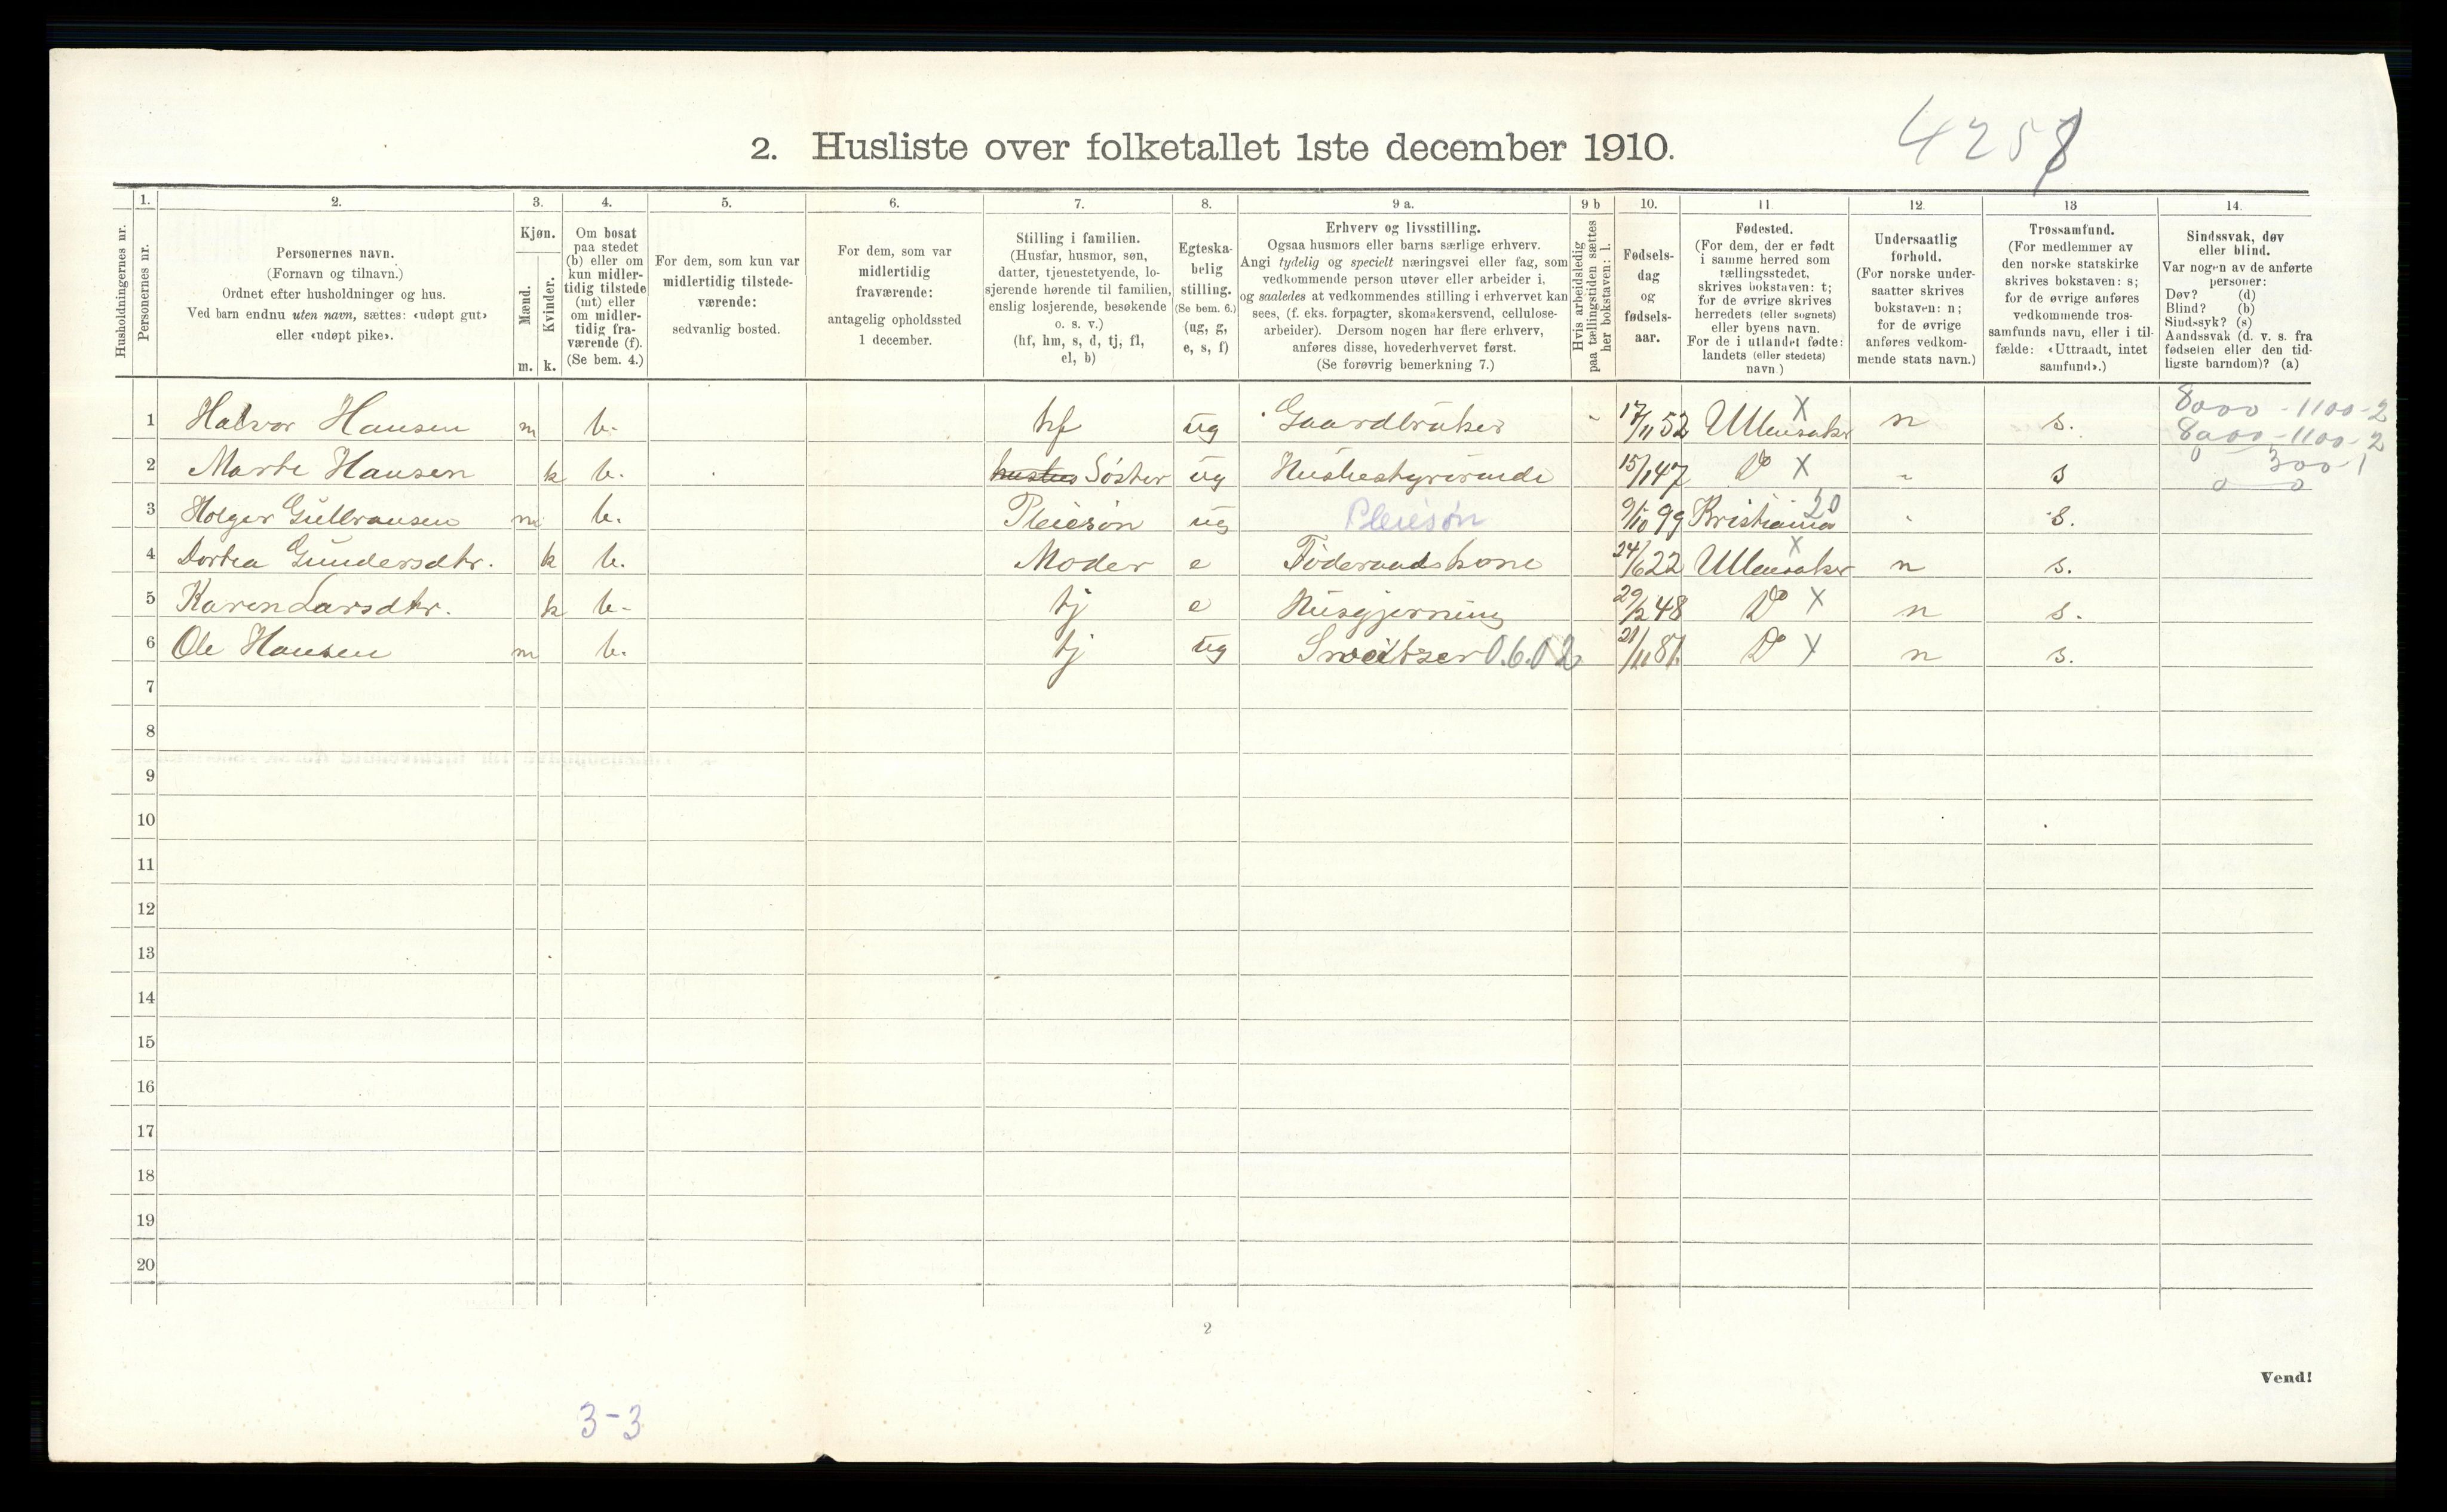 4258
2. Husliste over folketallet 1ste december 1910.
Husholdningernes nr.
1.
Personernes nr.
2.
Personernes navn.
(Fornavn og tilnavn.)
Ordnet efter husholdninger og hus.
Ved barn endnu uten navn, sættes: «udøpt gut»
eller «udøpt pike».
3.
Kjøn.
Mænd.
Kvinder.
m. k.
4.
Om bosat
paa stedet
(b) eller om
kun midler-
tidig tilstede
(mt) eller
om midler-
tidig fra-
værende (f).
(Se bem. 4.)
5.
For dem, som kun var
midlertidig tilstede-
værende:
sedvanlig bosted.
6.
For dem, som var
midlertidig
fraværende:
antagelig opholdssted
1 december.
7.
Stilling i familien.
(Husfar, husmor, søn,
datter, tjenestetyende, lo-
sjerende hørende til familien,
enslig losjerende, besøkende
o. s. v.)
(hf, hm, s, d, tj, fl,
el, b)
8.
Egteska-
belig
stilling.
(Se bem. 6.)
(ug, g,
e, s, f)
9 a.
Erhverv og livsstilling.
Ogsaa husmors eller barns særlige erhverv.
Angi tydelig og specielt næringsvei eller fag, som
vedkommende person utøver eller arbeider i,
og saaledes at vedkommendes stilling i erhvervet kan
sees, (f. eks. forpagter, skomakersvend, cellulose-
arbeider). Dersom nogen har flere erhverv,
anføres disse, hovederhvervet først.
(Se forøvrig bemerkning 7.)
9 b
Hvis arbeidsledig
paa tællingstiden sættes
her bokstaven: l.
10.
Fødsels-
dag
og
fødsels-
aar.
11.
Fødested.
(For dem, der er født
i samme herred som
tællingsstedet,
skrives bokstaven: t;
for de øvrige skrives
herredets (eller sognets)
eller byens navn.
For de i utlandet fødte:
landets (eller stedets)
navn.)
12.
Undersaatlig
forhold.
(For norske under-
saatter skrives
bokstaven: n;
for de øvrige
anføres vedkom-
mende stats navn.)
13
Trossamfund.
(For medlemmer av
den norske statskirke
skrives bokstaven: s;
for de øvrige anføres
vedkommende tros-
samfunds navn, eller i til-
fælde: «Uttraadt, intet
samfund».)
14.
Sindssvak, døv
eller blind.
Var nogen av de anførte
personer:
Døv? (d)
Blind? (b)
Sindssyk? (s)
Aandssvak (d. v. s. fra
fødselen eller den tid-
ligste barndom)? (a)
1 Halvor Hansen m b. hf ug Gaardbruker - 17/11 52 Ullensaker X n s. 8000 - 1100 - 2
8000 - 1100 - 2
2 Marte Hansen k b. Søster ug Husbestyrerinde 15/1 47 Do X " s 0 300 - 1
0 0
3 Holger Gulbransen m b. Pleiesøn ug Pleiesøn 9/10 99 Kristiania 20 " s.
4 Dortea Gundersdtr. k b. Moder e Föderaadskone 24/6 22 Ullensaker X n s.
5 Karen Larsdtr. k b. tj e Husgjerning 29/2 48 Do X n s.
6 Ole Hansen m b. tj ug Sveitser 0.6.02 21/11 81. Do X n s.
7
8
9
10
11
12
13
14
15
16
17
18
19
20
2
Vend!
3-3